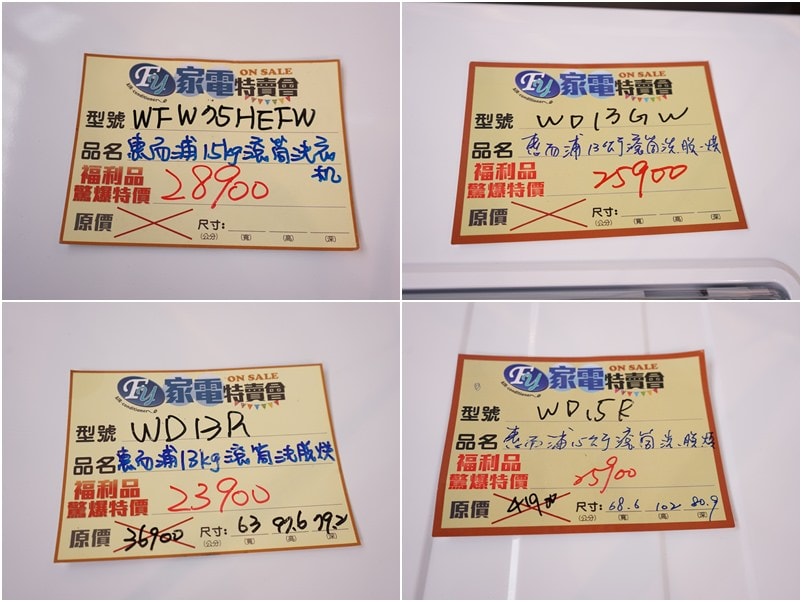 Fy 家電特賣會 ON SALE
型號 WFW75HEFW
品名 惠而浦15kg滾筒洗衣机
福利品
驚爆特價 28900
原價 尺寸:
(公分) (寬) (高) (深)
Fy 家電特賣會 ON SALE
型號 WD13GW
品名 惠而浦13公斤滾筒洗.脫.烘
福利品
驚爆特價 25900
原價 尺寸:
(公分) (寬) (高) (深)
Fy 家電特賣會 ON SALE
型號 WD13R
品名 惠而浦13kg滾筒洗脫烘
福利品
驚爆特價 23900
原價 36900 尺寸: 63 97.6 79.2
(公分) (寬) (高) (深)
Fy 家電特賣會 ON SALE
型號 WD15E
品名 惠而浦15公斤滾筒洗.脫烘
福利品
驚爆特價 25900
原價 41900 尺寸: 68.6 102 80.9
(公分) (寬) (高) (深)